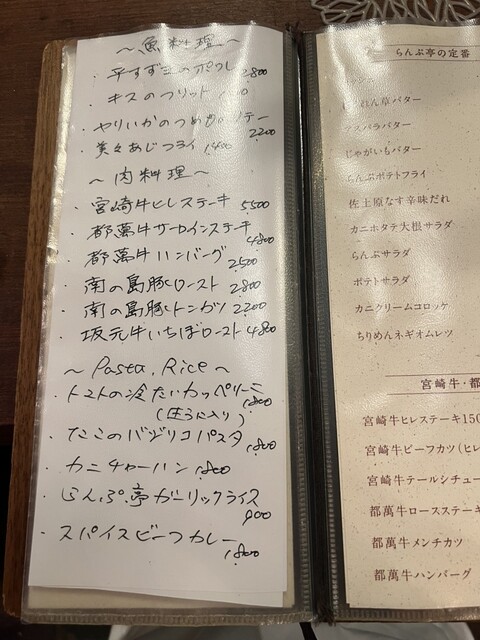 ～魚料理～
・平すずきのポワレ 2800
・キスのフリット
・やりいかのつめ
2200
・美々あじフライ 1,400
～肉料理～
・宮崎牛ヒレステーキ 5,500
・都萬牛サーロインステーキ
4800
・都萬牛ハンバーグ
2,500
・南の島豚ロースト 2,800
・南の島豚トンカツ 2200
・坂元牛いちぼロースト 4,800
～Pasta, Rice～
・トマトの冷たいカッペリーニ
1,800
(生うに入り)
・たこのバジリコパスタ
1,800
・カニチャーハン 1,800
・らんぷ亭ガーリックライス
900
・スパイスビーフカレー
1,800
らんぷ亭の定番
れん草バター
アスパラバター
じゃがいもバター
らんぷポテトフライ
佐土原なす辛味だれ
カニホタテ大根サラダ
らんぷサラダ
ポテトサラダ
カニクリームコロッケ
ちりめんネギオムレツ
宮崎牛・都
宮崎牛ヒレステーキ150
宮崎牛ビーフカツ(ヒレ
宮崎牛テールシチュー
都萬牛ロースステーキ
都萬牛メンチカツ
都萬牛ハンバーグ